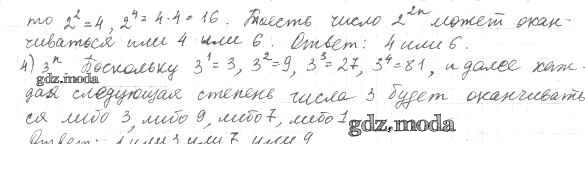 то 2² = 4, 2⁴ = 4·4 = 16. Тоесть число 2²ⁿ может окан-
чиваться или 4 или 6. Ответ: 4 или 6.
4) 3ⁿ Поскольку 3¹ = 3, 3² = 9, 3³ = 27, 3⁴ = 81, и далее каж-
gdz.moda
дая следующая степень числа 3 будет оканчивать
ся либо 3, либо 9, либо 7, либо 1
gdz.moda
Ответ: 1 или 3 или 7 или 9